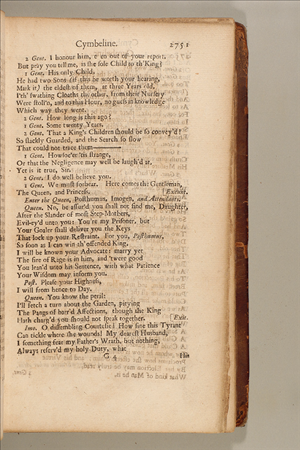 Cymbeline. 2751
2 Gent. I honour him, e'en out of your report.
But pray you tell me, is she sole Child to th' King?
1 Gent. His only Child.
He had two Sons (if this be worth your hearing,
Mark it) the eldest of them, at three Years old,
I'th' swathing Cloaths the other, from their Nursery
Were stoll'n, and to this Hour, no guess in knowledge
Which way they went.
2 Gent. How long is this ago?
1 Gent. Some twenty Years.
2 Gent. That a King's Children should be so convey'd!
So slackly Guarded, and the Search so slow
That could not trace them———
1 Gent. Howsoe'er 'tis strange,
Or that the Negligence may well be laugh'd at,
Yet is it true, Sir.
2 Gent. I do well believe you.
1 Gent. We must forbear. Here comes the Gentleman,
The Queen, and Princess. [Exeunt.
Enter the Queen, Posthumus, Imogen, and Attendants.
Queen. No, be assur'd you shall not find me, Daughter,
After the Slander of most Step-Mothers,
Evil-ey'd unto you: You're my Prisoner, but
Your Goaler shall deliver you the Keys
That lock up your Restraint. For you, Posthumus,
So soon as I can win th' offended King,
I will be known your Advocate: marry yet
The fire of Rage is in him, and 'twere good
You lean'd unto his Sentence, with what Patience
Your Wisdom may inform you.
Post. Please your Highness,
I will from hence to Day.
Queen. You know the peril:
I'll fetch a turn about the Garden, pitying
The Pangs of barr'd Affections, though the King
Hath charg'd you should not speak together. [Exit.
Imo. O dissembling Courtesie! How fine this Tyrant
Can tickle where she wounds! My dearest Husband,
I something fear my Father's Wrath, but nothing,
Always reserv'd my holy Duty, what
G 4 His